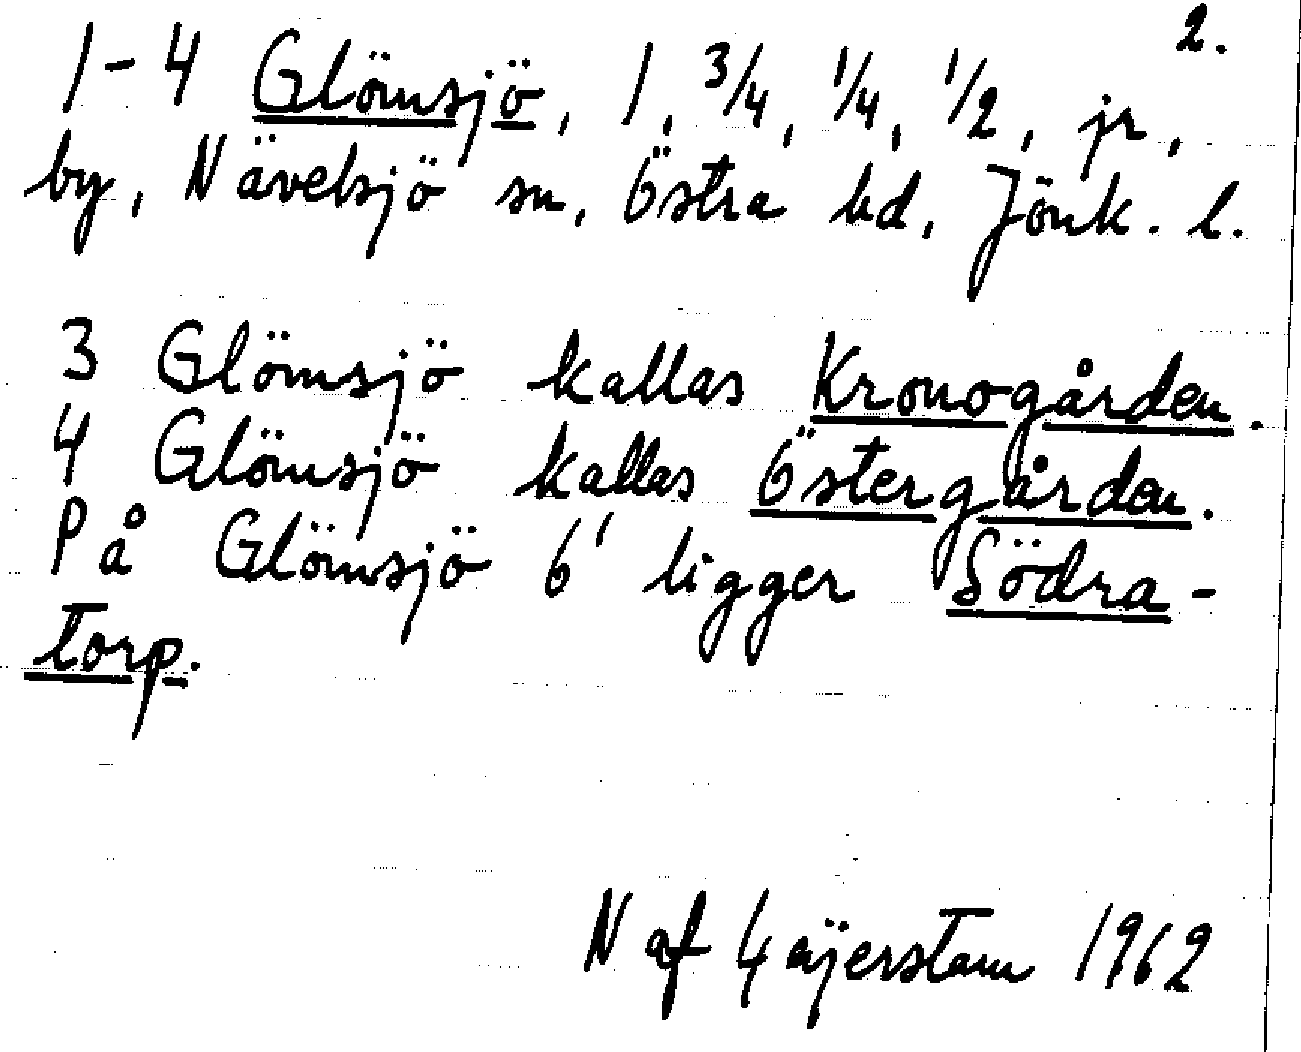 2.
1-4 Glömsjö, 1, 3/4, 1/4, 1/2, jr,
by, Nävelsjö sn, Östra hd, Jönk. l.
3 Glömsjö kallas Kronogården.
4 Glömsjö kallas Östergården.
På Glömsjö 6' ligger Södra-
torp.
N af Geijerstam 1962